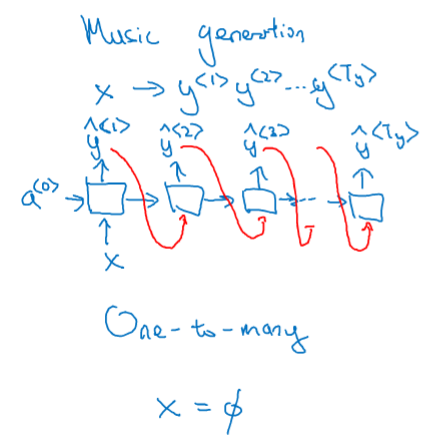 Music generation
x → y<1> y<2> ... y<Ty>
ŷ<1> ŷ<2> ŷ<3> ŷ<Ty>
a<0> → → → → ... →
x
One-to-many
x = ϕ